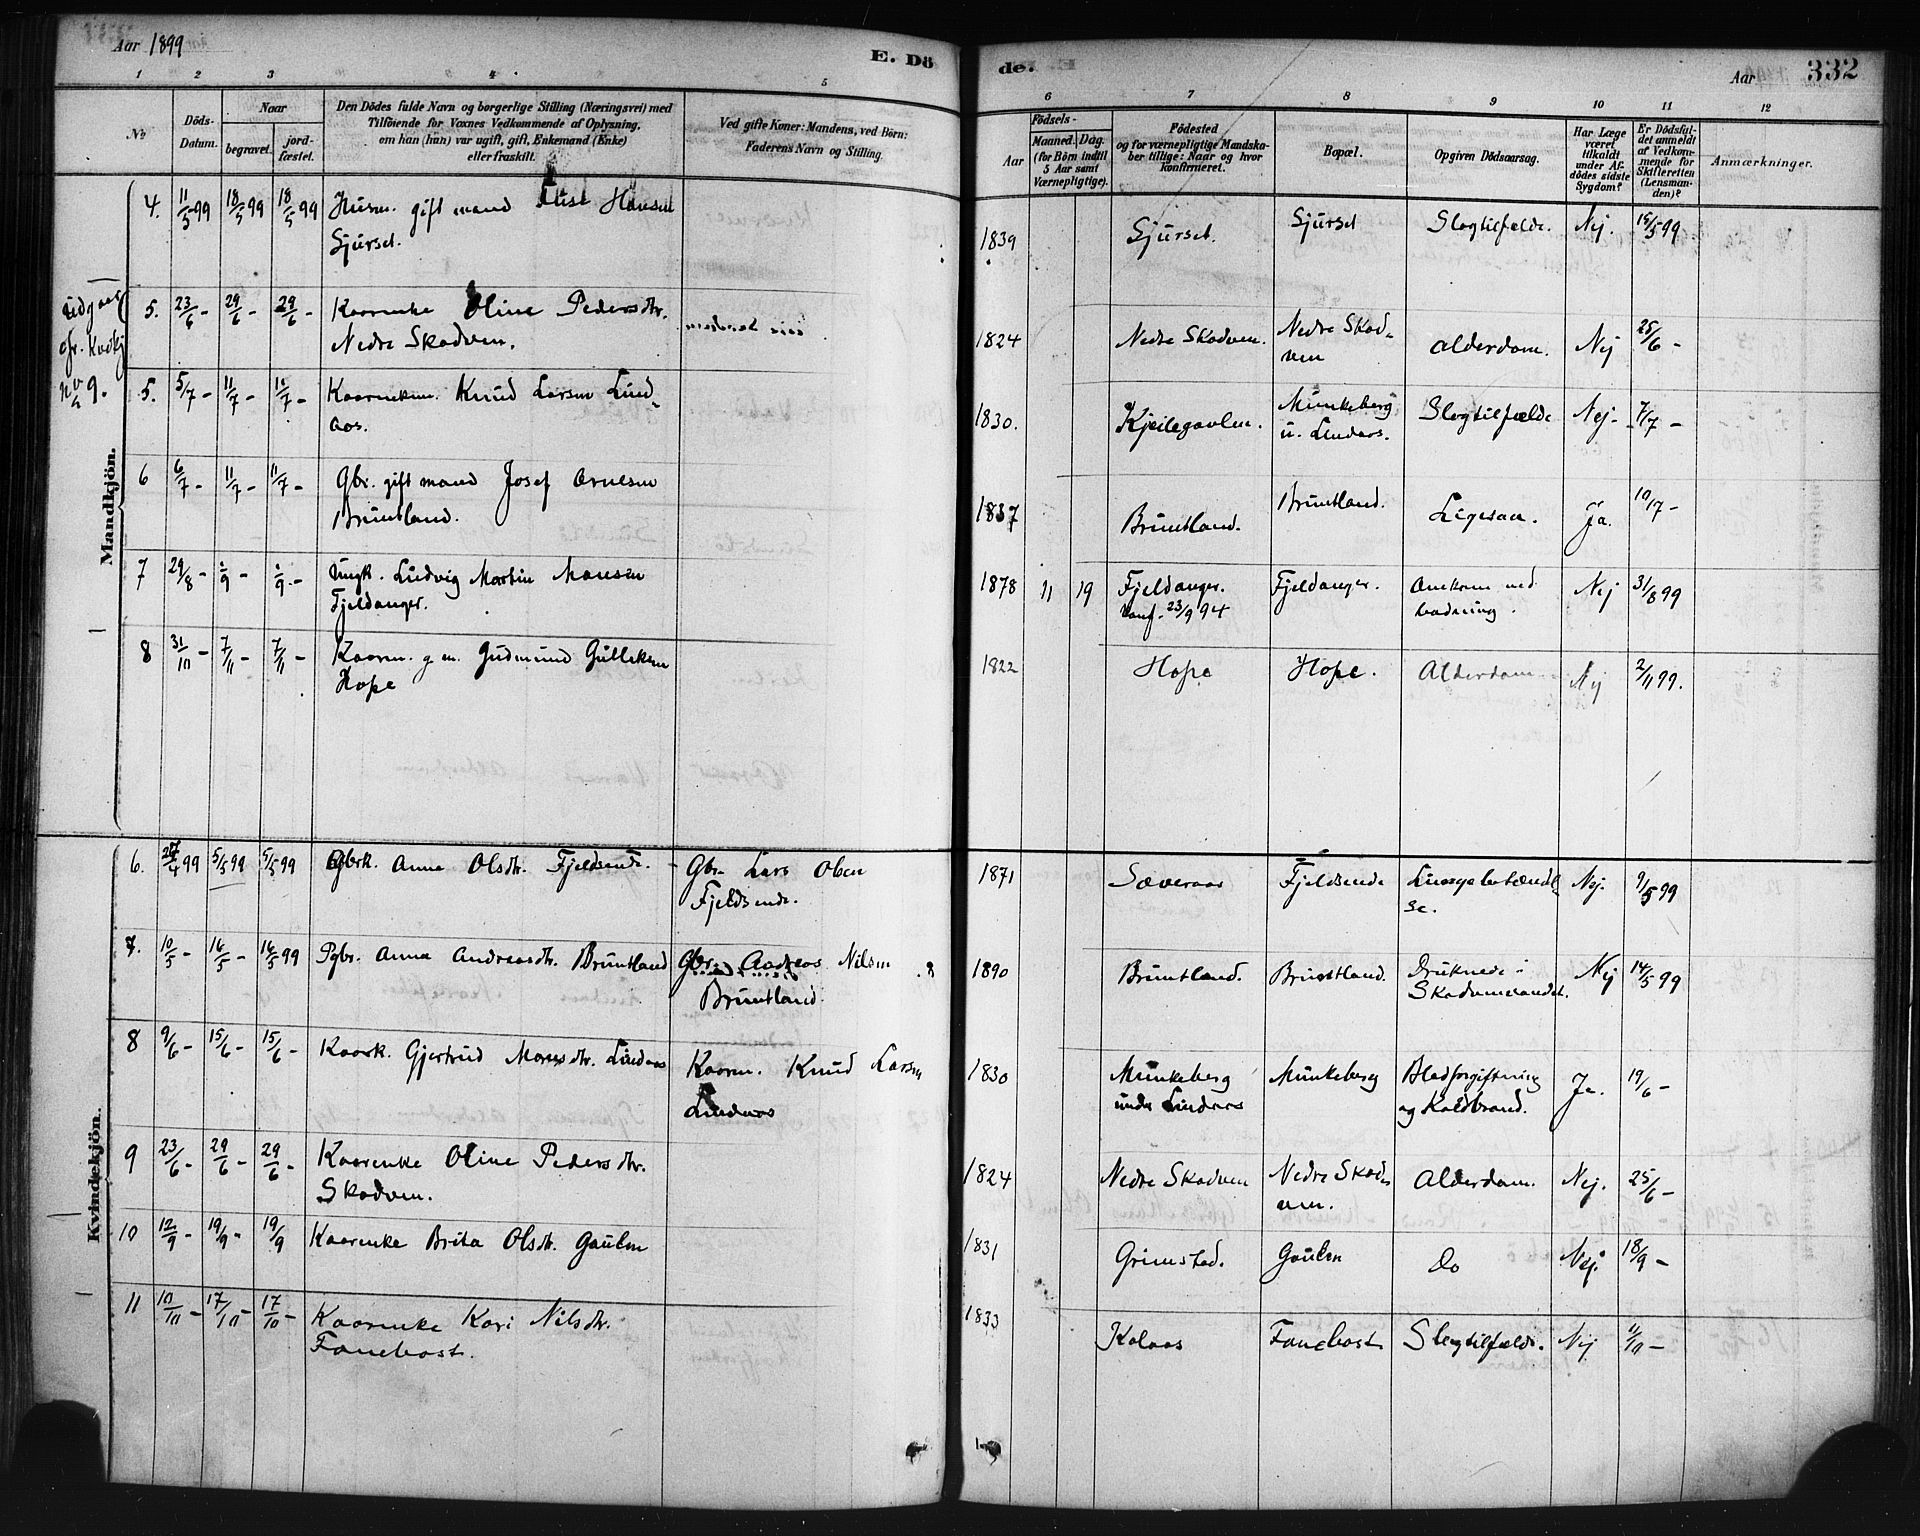 Aar 1899
E. Dö
de.
Aar
332
1 2 3 4 5
6 7 8 9 10 11 12
No
Döds-
Datum.
Naar
begravet.
jord-
fæstet.
Den Dödes fulde Navn og borgerlige Stilling (Næringsvei) med
Tilföiende for Voxnes Vedkommende af Oplysning,
om han (hun) var ugift, gift, Enkemand (Enke)
eller fraskilt.
Ved gifte Koner: Mandens, ved Börn:
Faderens Navn og Stilling.
Födsels-
Aar
Maaned. Dag.
(for Börn indtil
5 Aar samt
Værnepligtige).
Födested
og for værnepligtige Mandska-
ber tillige: Naar og hvor
konfirmeret.
Bopæl.
Opgiven Dödsaarsag.
Har Læge
været
tilkaldt
under Af-
dödes sidste
Sygdom?
Er Dödsfal-
det anmeldt
af Vedkom-
mende for
Skifteretten
(Lensman-
den)?
Anmærkninger.
Mandkjön.
4. 11/5 99 18/5 99 18/5 99 Husm. gift mand Hansen
Sjurset.
1839 Sjurset. Sjurset Slagtilfælde. Nej. 15/5 99
udgaar
cfr. Kvdkj
No 9.
5. 23/6 - 29/6 - 29/6 - Kaarenke Oline Pedersdtr.
Nedre Skodven.
1824 Nedre Skodven. Nedre Skod-
ven
Alderdom. Nej 25/6 -
5. 5/7 - 11/7 - 11/7 - Kaarenkem. Knud Larsen Lind-
aas.
1830. Kjeilegavlen. Munkeberg
u. Lindaas.
Slagtilfælde Nej. 7/7 -
6 6/7 - 11/7 - 11/7 - Gbr. gift mand Josef Arnesen
Bruntland.
1837 Bruntland. Bruntland. Ligesaa. Ja. 10/7 -
7 29/8 - 1/9 - 1/9 - Ungk. Ludvig Martin Monsen
Fjeldanger.
1878 11 19 Fjeldanger.
Konf. 23/9 94
Fjeldanger. Omkom ved
badning. Nej 31/8 99
8 31/10 - 7/11 - 7/11 - Kaarm. g. m. Gudmund Gulleksen
Hope
1822 Hope Hope. Alderdom Nej 2/11 99.
Kvindekjön.
6. 27/4 99 5/5 99 5/5 99 Gbrk. Anna Olsdtr. Fjeldsende. Gbr. Lars Olsen
Fjeldsende.
1871 Sæveraas Fjeldsende Lungebetændel-
se. Nej. 9/5 99
7. 10/5 - 16/5 - 16/5 99 Pgbr. Anna Andreasdtr. Bruntland Gbr. Andreas Nilsen
Bruntland.
1890 Bruntland. Bruntland. Druknede i
Skodvenvandet. Nej 14/5 99
8 9/6 - 15/6 - 15/6 - Kaark. Gjertrud Monsdtr. Lindaas Kaarm. Knud Larsen
Lindaas
1830 Munkeberg
under Lindaas
Munkeberg Blodforgiftning
og Koldbrand. Ja. 19/6 -
9 23/6 - 29/6 - 29/6 - Kaarenke Oline Pedersdtr.
Skodven.
1824 Nedre Skodven Nedre Skod-
ven.
Alderdom. Nej. 25/6 -
10 12/9 - 19/9 - 19/9 Kaarenke Brita Olsdtr. Gaulen
1831 Grimstad. Gaulen Do Nej. 18/9 -
11 10/10 - 17/10 - 17/10 - Kaarenke Kari Nilsdtr.
Fanebost.
1833 Kolaas Fanebost Slagtilfælde. Nej 11/10 -